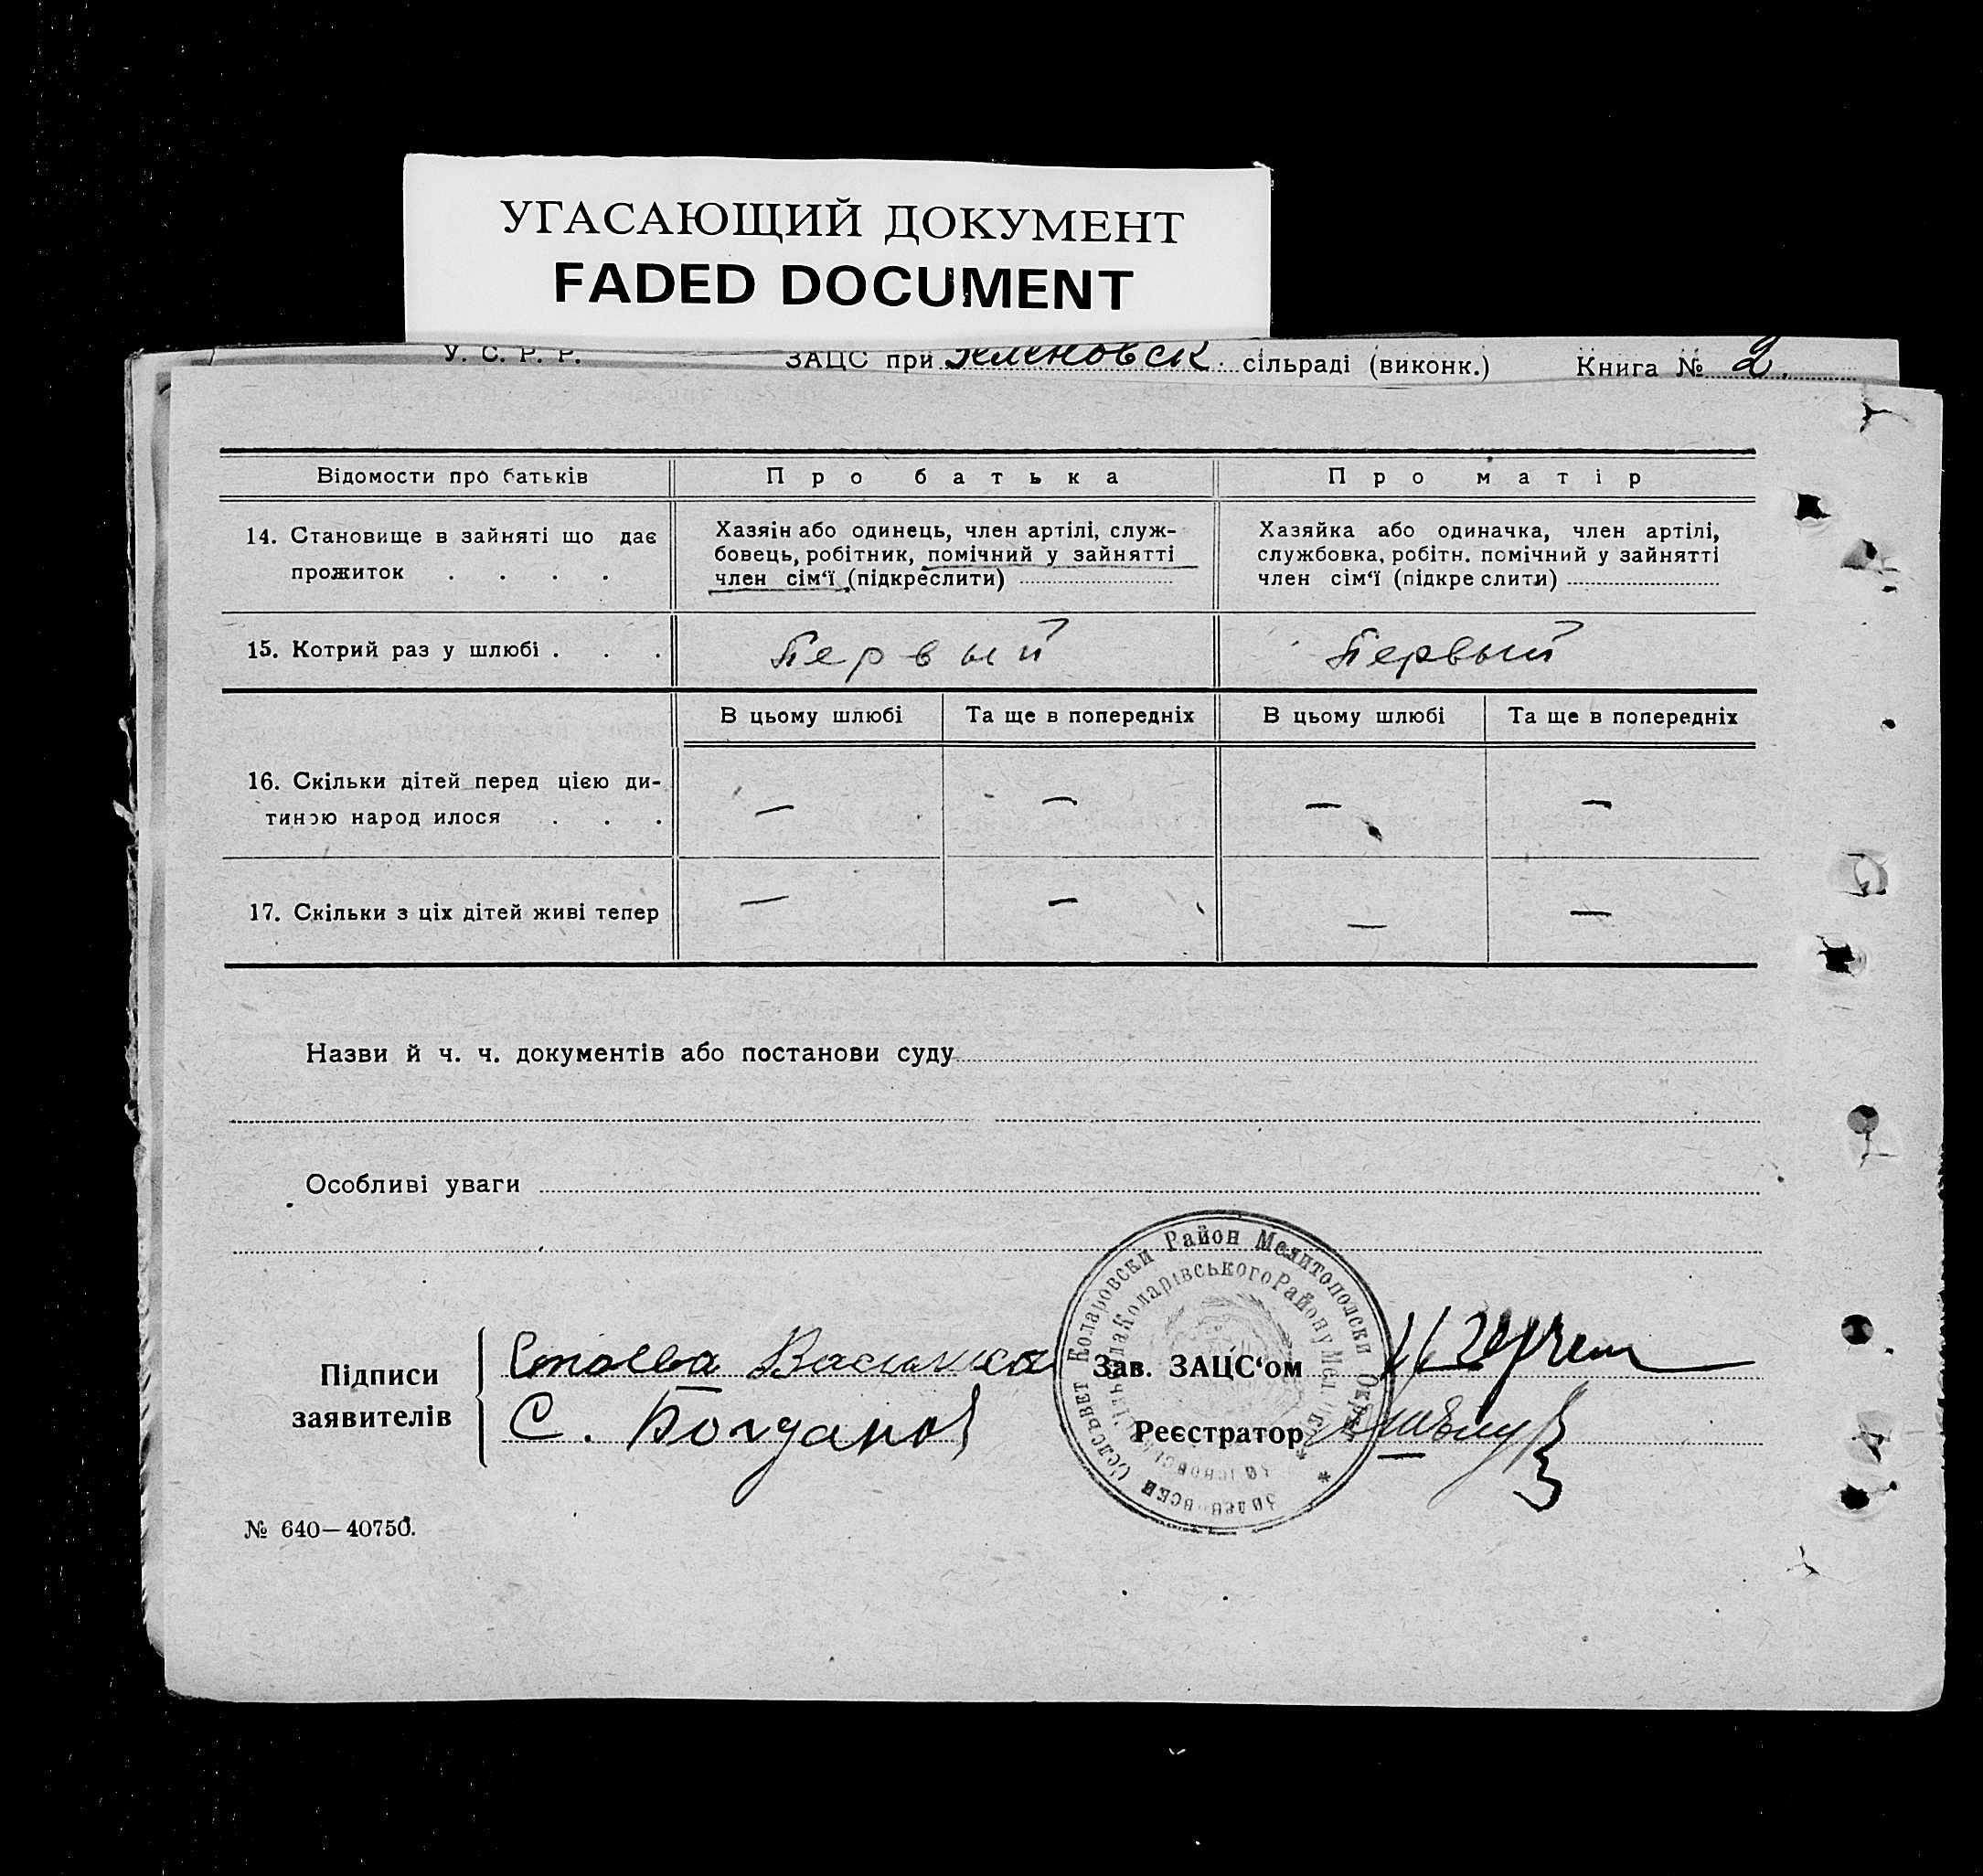 УГАСАЮЩИЙ ДОКУМЕНТ
FADED DOCUMENT
У. С. Р. Р. ЗАЦС при сільраді (виконк.) Книга № 2.
Відомости про батьків Про батька Про матір
14. Становище в зайняті що дає прожиток . . . .
Хазяїн або одинець, член артілі, служ-
бовець, робітник, помічний у зайнятті
член сім‘ї (підкреслити)
Хазяйка або одиначка, член артілі,
службовка, робітн. помічний у зайнятті
член сім‘ї (підкре слити)
15. Котрий раз у шлюбі . . . Первый Первый
В цьому шлюбі Та ще в попередніх В цьому шлюбі Та ще в попередніх
16. Скільки дітей перед цією ди-
тиною народ илося . . . — — — —
17. Скільки з ціх дітей живі тепер — — — —
Назви й ч. ч. документів або постанови суду
Особливі уваги
Коларовски Район Мелитополски Окръг
Коларівського Району
Підписи
заявителів
Стоева Василиса
С. Богданов
Зав. ЗАЦС‘ом
Реєстратор
№ 640—40750.